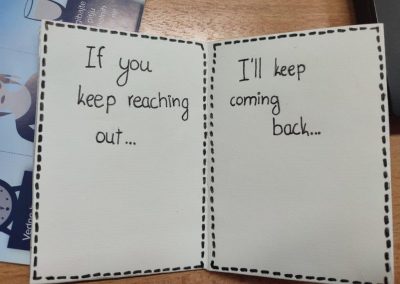 If you
keep reaching
out...
I'll keep
coming
back...